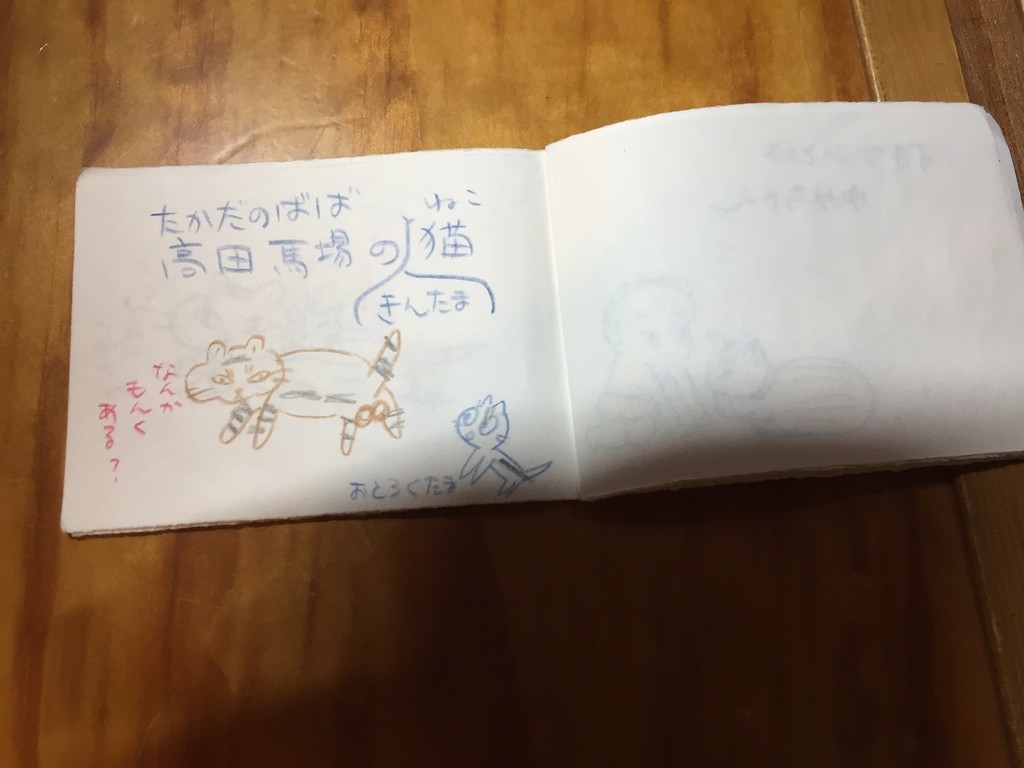 たかだのばば ねこ
高田馬場の猫
きんたま
なんか
もんく
ある?
おとろくたま